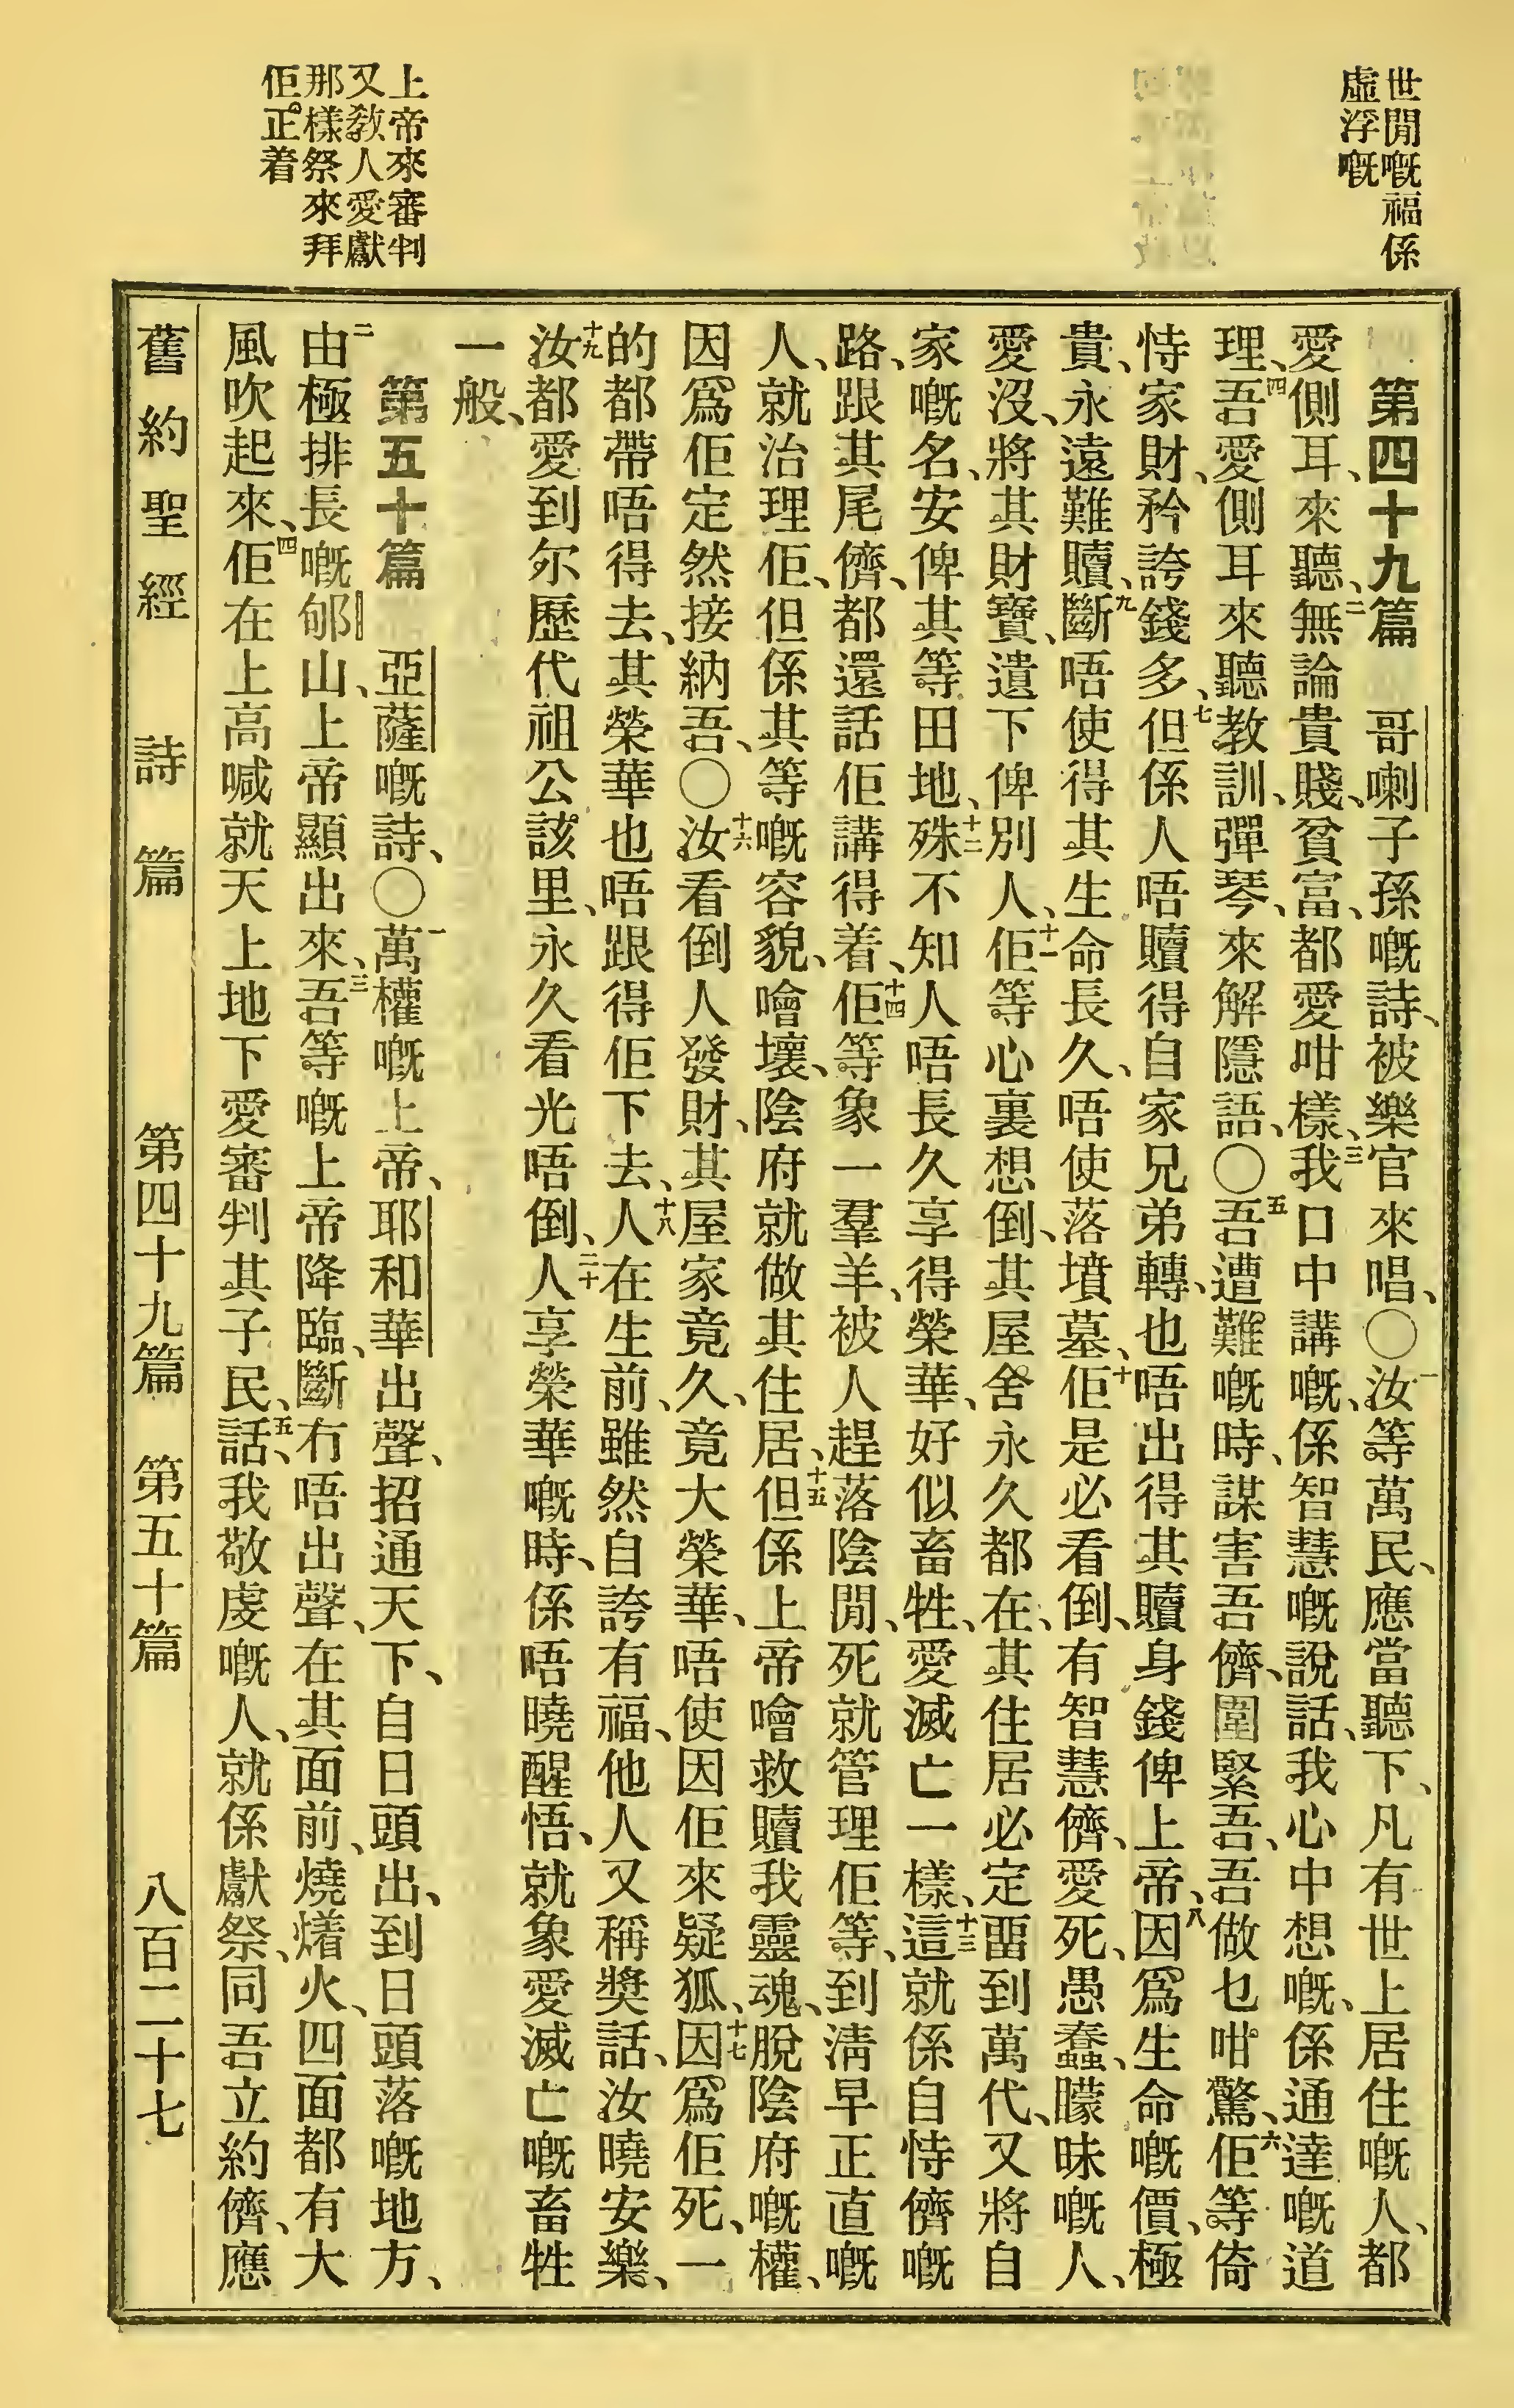 世閒嘅福係
虛浮嘅
上帝來審判
又敎人愛獻
那樣祭來拜
佢正着
第四十九篇 哥喇子孫嘅詩、被樂官來唱、〇一汝等萬民、應當聽下、凡有世上居住嘅人、都
愛側耳、來聽、二無論貴賤、貧富、都愛咁樣、三我口中講嘅、係智慧嘅說話、我心中想嘅、係通達嘅道
理、四吾愛側耳來聽教訓、彈琴、來解隱語、〇五吾遭難嘅時、謀害吾儕、圍緊吾、吾做乜咁驚、六佢等倚
恃家財、矜誇錢多、七但係人唔贖得自家兄弟轉、也唔出得其贖身錢俾上帝、八因爲生命嘅價、極
貴、永遠難贖、九斷唔使得其生命長久、唔使落墳墓、十佢是必看倒、有智慧儕、愛死、愚蠢、矇昧嘅人、
愛沒、將其財寶、遺下俾別人、十一佢等心裏想倒、其屋舍永久都在、其住居必定畱到萬代、又將自
家嘅名、安俾其等田地、十二殊不知人唔長久享得榮華、好似畜牲、愛滅亡一樣、十三這就係自恃儕嘅
路、跟其尾儕、都還話佢講得着、十四佢等象一羣羊、被人趕落陰閒、死就管理佢等、到淸早正直嘅
人、就治理佢、但係其等嘅容貌、噲壞、陰府就做其住居、十五但係上帝噲救贖我靈魂、脫陰府嘅權、
因爲佢定然接納吾、〇十六汝看倒人發財、其屋家竟久、竟大榮華、唔使因佢來疑狐、十七因爲佢死、一
的都帶唔得去、其榮華也唔跟得佢下去、十八人在生前、雖然自誇有福、他人又稱獎話、汝曉安樂、
十九汝都愛到尔歷代祖公該里、永久看光唔倒、二十人享榮華嘅時、係唔曉醒悟、就象愛滅亡嘅畜牲
一般、
第五十篇 亞薩嘅詩、〇一萬權嘅上帝、耶和華出聲、招通天下、自日頭出、到日頭落嘅地方、
二由極排長嘅郇山、上帝顯出來、三吾等嘅上帝降臨、斷冇唔出聲、在其面前、燒㷮火、四面都有大
風吹起來、四佢在上高喊就天上地下愛審判其子民、五話、我敬虔嘅人、就係獻祭、同吾立約儕、應
舊約聖經 詩篇 第四十九篇 第五十篇 八百二十七